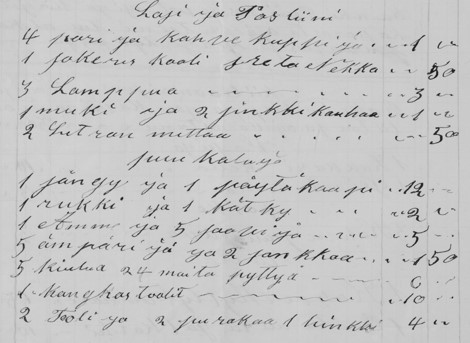 Lasi ja Posliini
4 pari ja kahve kuppija .. .. 1 "
1 sokeri kooli Nekka .. .. 50
3 Lamppua .. .. 3 ..
1 muki ja 2 jinkkikauhaa .. 1 ..
2 Litran mittaa .. .. 50
puu Kaluja
1 sängy ja 1 pöytäkaapi .. 12 ..
1 rukki ja 1 kätky .. .. 2 ..
1 Amme ja 5 saavija .. .. 5 ..
5 ämpärijä ja 2 jankkaa .. 1 50
5 kiulua 24 maito pyttyä .. 6 ..
1 kangkastoolit 10 ..
2 Tooli ja 2 purakaa 1 hinkki 4 "